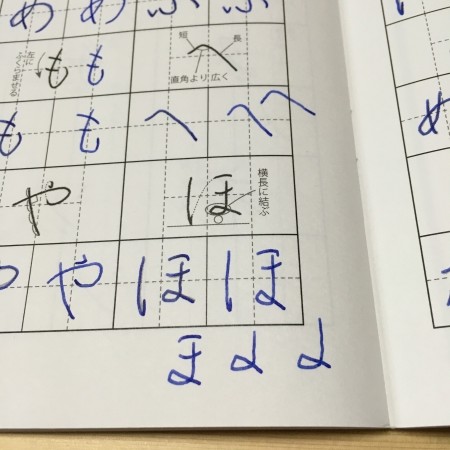 め め ふ ふ
左に
ふくらませる
も も
短 長
へ
直角より広く
も も へ へ へ
め
や ほ
横長に結ぶ
や や ほ ほ
ま よ よ